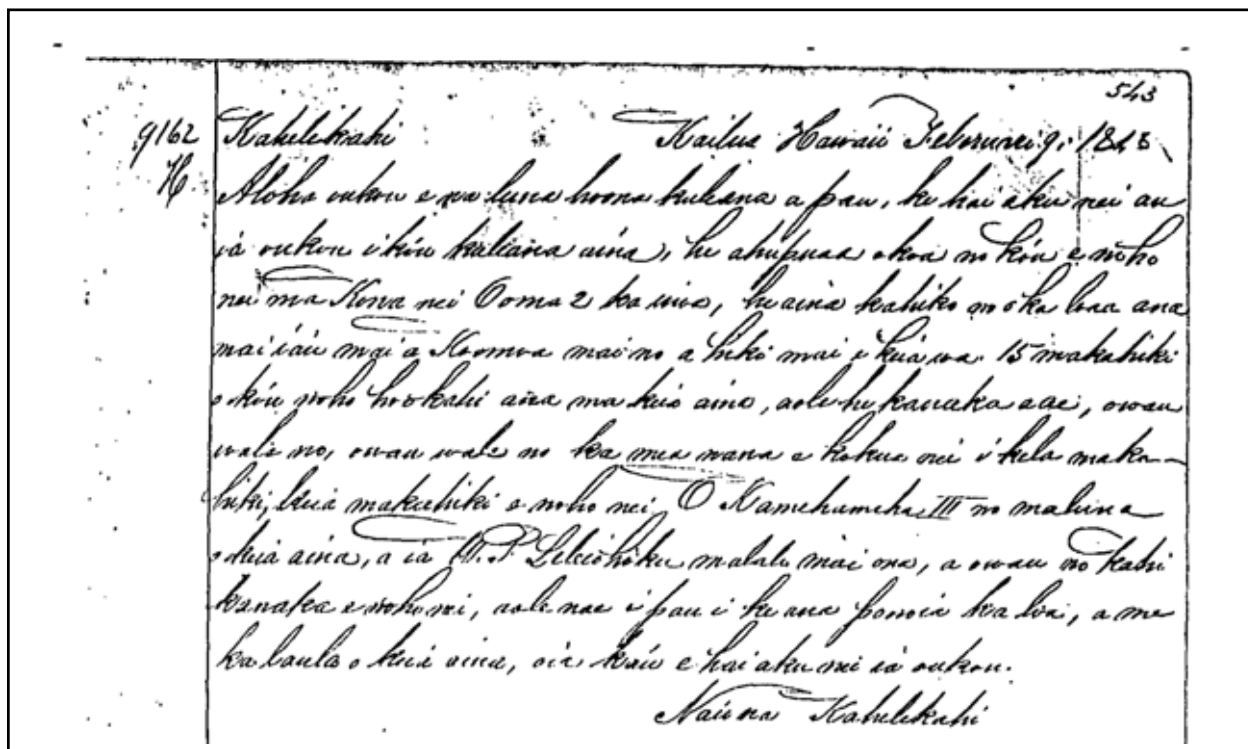 543
9162 Kahelekahi Kailua Hawaii Feberuei 9. 1848
H Aloha oukou e na luna hoona kuleana a pau, ke hai aku nei au
ia oukou i kou kuleana aina, he ahupuaa okoa no kou e noho
nei ma Kona nei Ooma 2 ka inoa, he aina kahiko no o ka loaa ana
mai iau mai a Koomoa mai no a hiki mai i keia wa 15 makahiki
o kou noho hookahi ana ma keia aina, aole he kanaka aae, owau
wale no, owau wale no ka mea nana e kokua nei i kela maka-
hiki, keia makahiki e noho nei. O Kamehameha III no maluna
o keia aina, a ia W. P. Leleiohoku malalo mai ona, a owau no kahi
kanaka e noho nei, aole nae i pau i ke ana ponoia ka loa, a me
ka laula o keia aina, oia kau e hai aku nei ia oukou.
Na'u na Kahelekahi